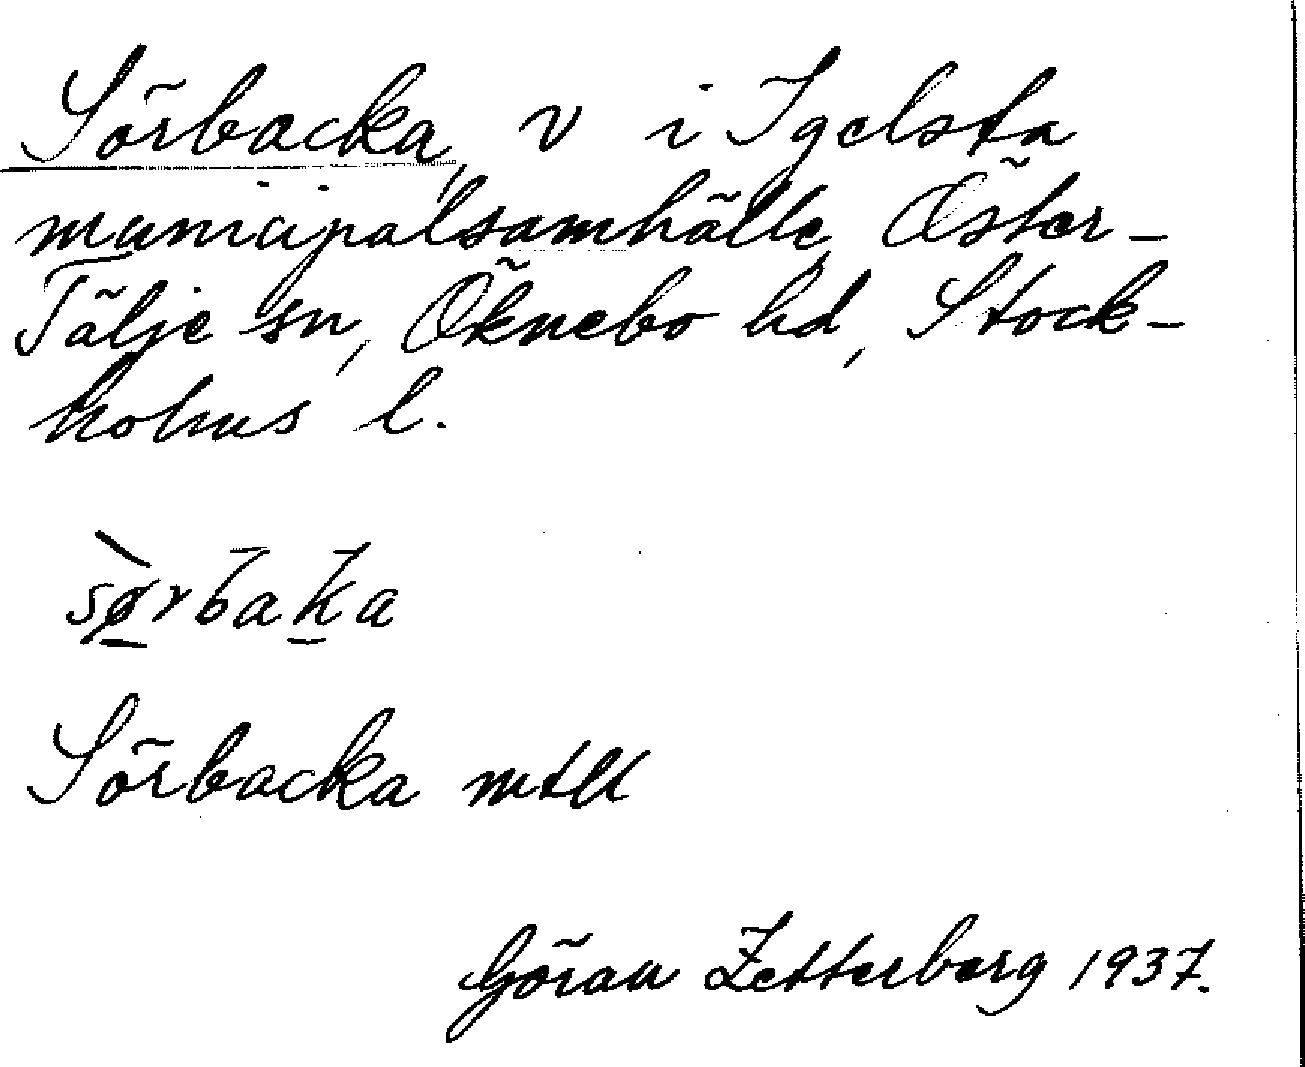 Sörbacka, v i Igelsta
municipalsamhälle, Öster-
Tälje sn, Öknebo hd, Stock-
holms l.
sø̀rbaka
Sörbacka mtll
Göran Zetterberg 1937.